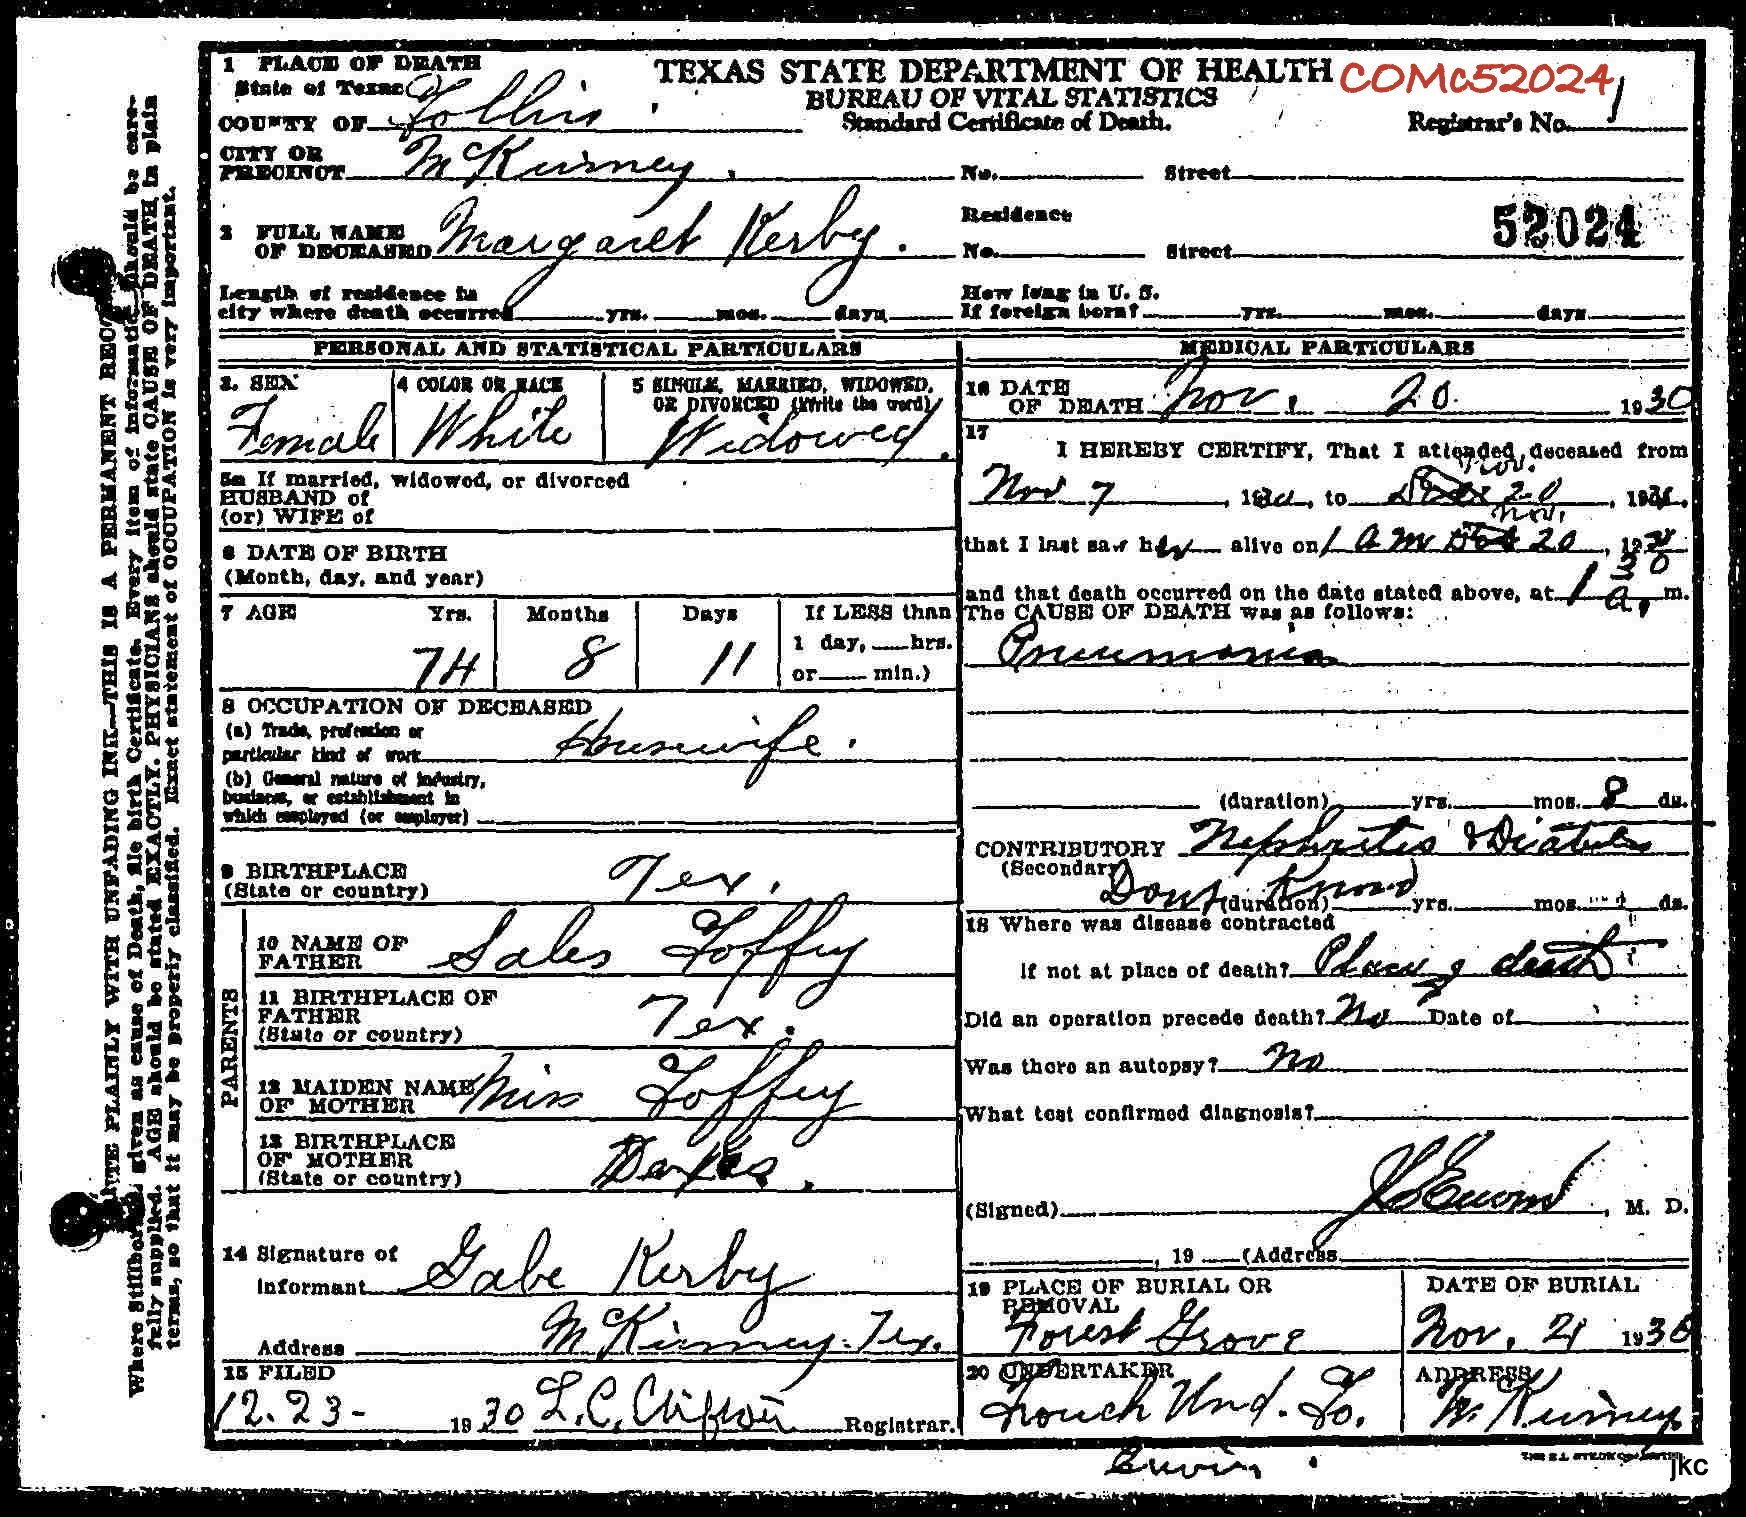 1 PLACE OF DEATH
State of Texas
COUNTY OF Collin
CITY OR
PRECINCT McKinney.
TEXAS STATE DEPARTMENT OF HEALTH
BUREAU OF VITAL STATISTICS
Standard Certificate of Death.
COMc52024
Registrar's No. 1
No. Street
2 FULL NAME
OF DECEASED Margaret Kerby.
Residence
No. Street
52024
Length of residence in
city where death occurred yrs. mos. days
How long in U. S.
If foreign born? yrs. mos. days
PERSONAL AND STATISTICAL PARTICULARS
3. SEX
Female
4 COLOR OR RACE
White
5 SINGLE, MARRIED, WIDOWED,
OR DIVORCED (Write the word)
Widowed.
5a If married, widowed, or divorced
HUSBAND of
(or) WIFE of
6 DATE OF BIRTH
(Month, day, and year)
7 AGE Yrs. Months Days If LESS than
1 day, hrs.
74 8 11 or min.)
8 OCCUPATION OF DECEASED
(a) Trade, profession or
particular kind of work Housewife.
(b) General nature of industry,
business, or establishment in
which employed (or employer)
9 BIRTHPLACE
(State or country) Tex.
PARENTS
10 NAME OF
FATHER Sales Goffey
11 BIRTHPLACE OF
FATHER
(State or country) Tex.
12 MAIDEN NAME
OF MOTHER Miss Goffey
13 BIRTHPLACE
OF MOTHER
(State or country)
14 Signature of
Informant Gabe Kerby
Address McKinney. Tex.
15 FILED
12-23- 1930 L. C. Clifton Registrar.
MEDICAL PARTICULARS
16 DATE
OF DEATH Nov. 20 1930
17
I HEREBY CERTIFY, That I attended deceased from
Nov 7, 1930, to Nov. 20, 19
that I last saw her alive on 1 a m Nov. 20, 1930
and that death occurred on the date stated above, at 1 a. m.
The CAUSE OF DEATH was as follows:
Pneumonia
(duration) yrs. mos. 8 ds.
CONTRIBUTORY Nephritis & Diabetes
(Secondary)
Dont Know (duration) yrs. mos. ds.
18 Where was disease contracted
if not at place of death? Place of death
Did an operation precede death? No Date of
Was there an autopsy? No
What test confirmed diagnosis?
(Signed) , M. D.
, 19 (Address
19 PLACE OF BURIAL OR
REMOVAL
Forest Grove
DATE OF BURIAL
Nov. 21 1930
20 UNDERTAKER
Crouch Und. Co.
ADDRESS
McKinney
jkc
WRITE PLAINLY WITH UNFADING INK—THIS IS A PERMANENT RECORD
Where Stillborn given as cause of Death, file birth Certificate. Every item of information should be care-
fully supplied. AGE should be stated EXACTLY. PHYSICIANS should state CAUSE OF DEATH in plain
terms, so that it may be properly classified. Exact statement of OCCUPATION is very important.